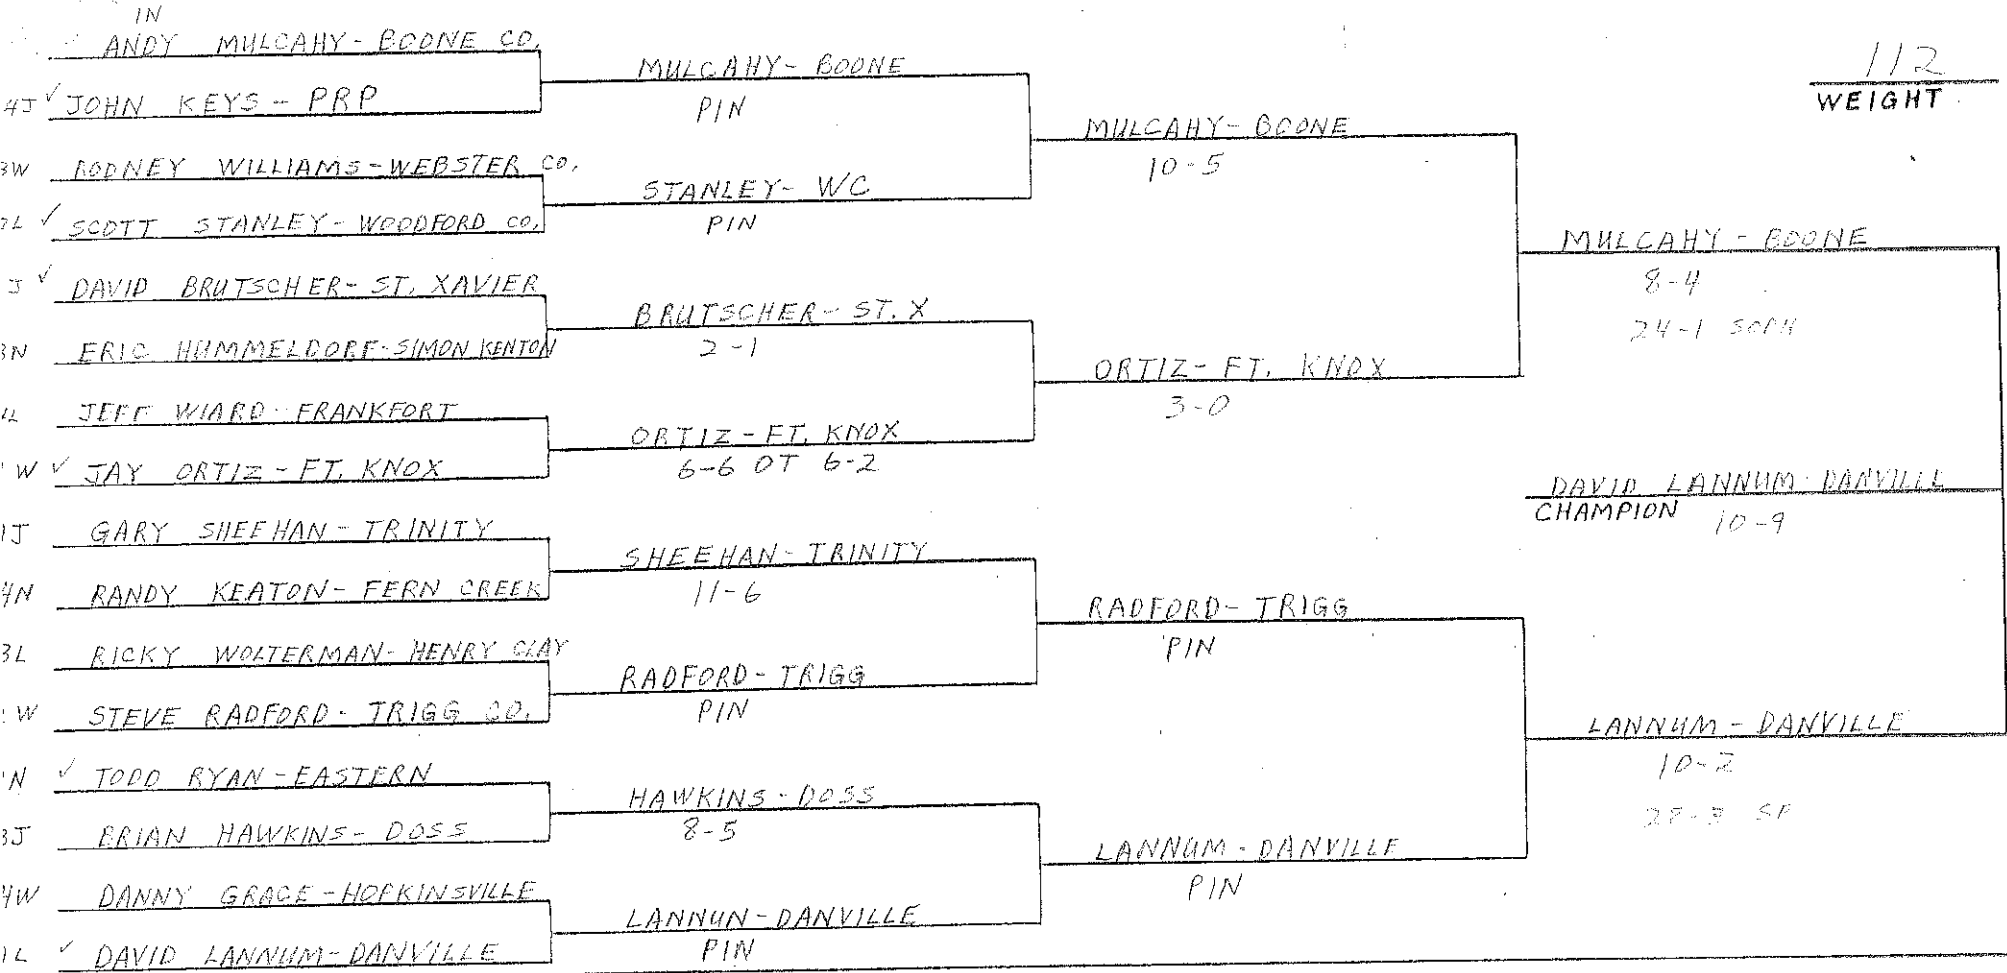 IN
ANDY MULCAHY - BOONE CO.
4J ✓ JOHN KEYS - PRP
3W RODNEY WILLIAMS - WEBSTER CO.
2L ✓ SCOTT STANLEY - WOODFORD CO.
J ✓ DAVID BRUTSCHER - ST. XAVIER
3N ERIC HUMMELDORF - SIMON KENTON
4L JEFF WIARD - FRANKFORT
W ✓ JAY ORTIZ - FT. KNOX
1J GARY SHEEHAN - TRINITY
4N RANDY KEATON - FERN CREEK
3L RICKY WOLTERMAN - HENRY CLAY
W STEVE RADFORD - TRIGG CO.
N ✓ TODD RYAN - EASTERN
3J BRIAN HAWKINS - DOSS
4W DANNY GRACE - HOPKINSVILLE
1L ✓ DAVID LANNUM - DANVILLE
MULCAHY - BOONE
PIN
STANLEY - WC
PIN
BRUTSCHER - ST. X
2-1
ORTIZ - FT. KNOX
6-6 OT 6-2
SHEEHAN - TRINITY
11-6
RADFORD - TRIGG
PIN
HAWKINS - DOSS
8-5
LANNUN - DANVILLE
PIN
MULCAHY - BOONE
10-5
ORTIZ - FT. KNOX
3-0
RADFORD - TRIGG
PIN
LANNUM - DANVILLE
PIN
MULCAHY - BOONE
8-4
24-1 SOPH
LANNUM - DANVILLE
10-2
28-3 SR
DAVID LANNUM - DANVILLE
CHAMPION 10-9
112
WEIGHT